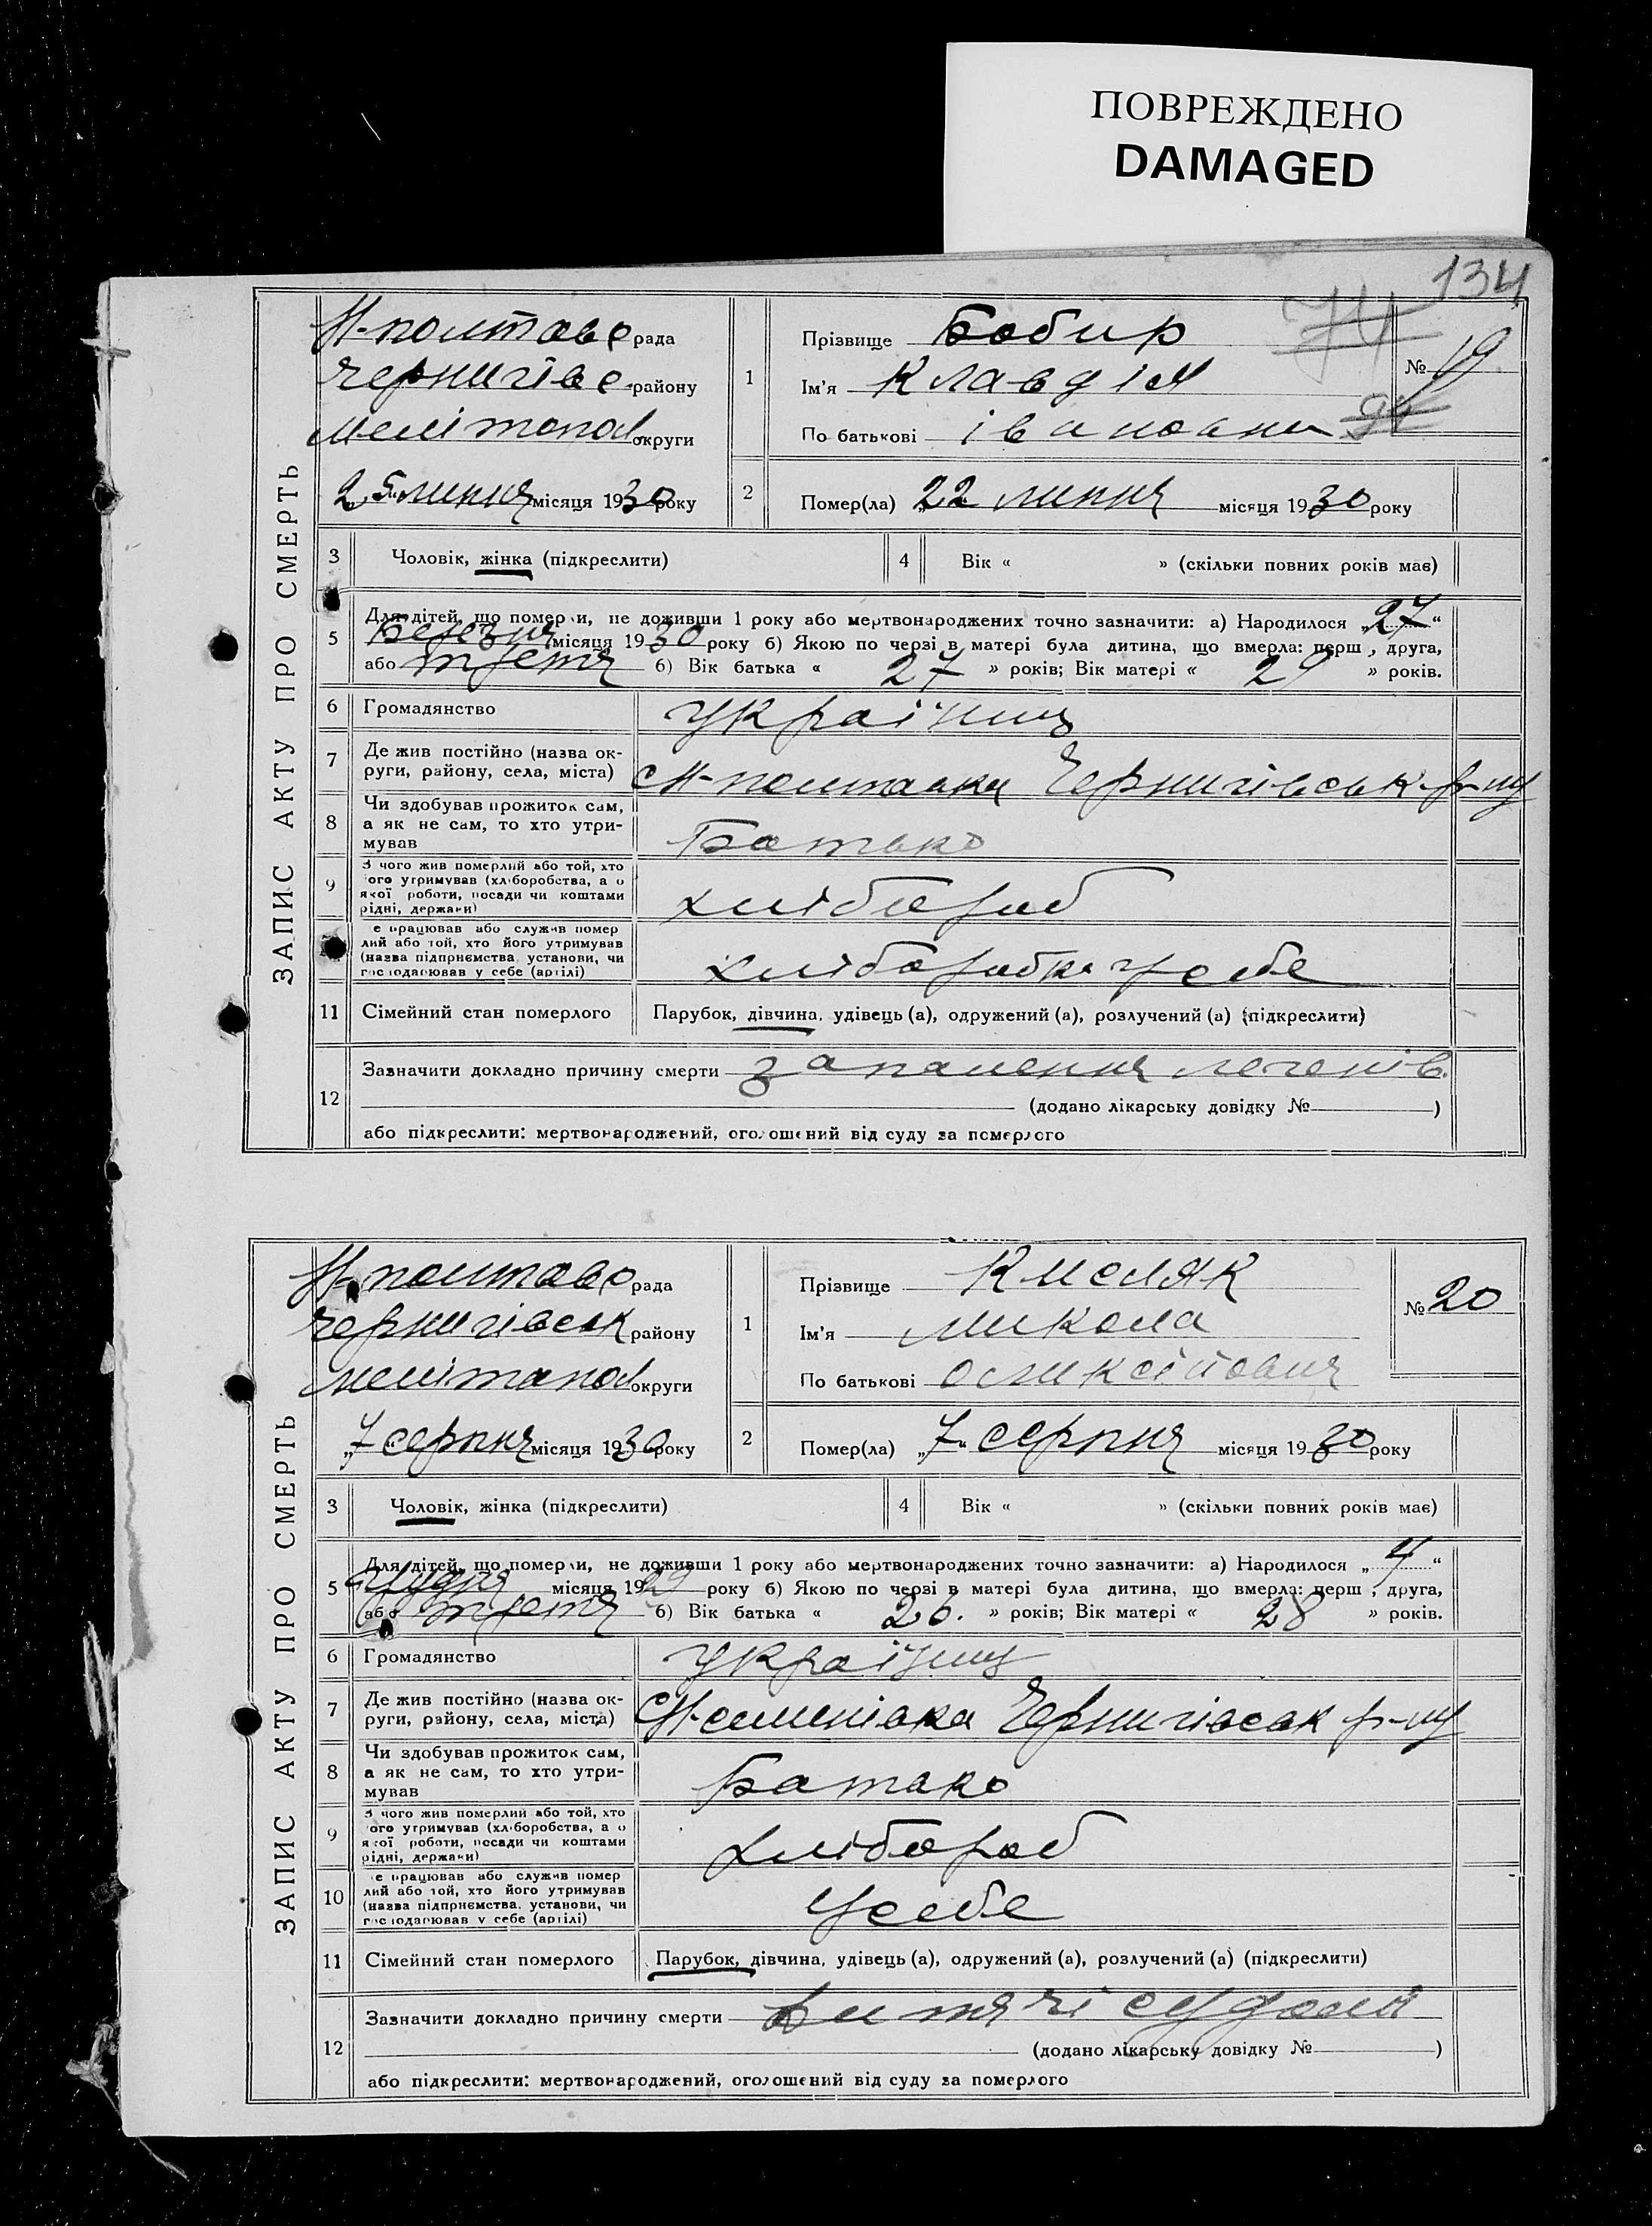 ПОВРЕЖДЕНО
DAMAGED
134
74
ЗАПИС АКТУ ПРО СМЕРТЬ
Н-полтавс рада
Чернигівс. району
Мелітопол округи
"25" липня місяця 1930 року
1 Прізвище Бобир
Ім'я Клавдія
По батькові івановна
№ 19
94
2 Помер(ла) "22" липня місяця 1930 року
3 Чоловік, жінка (підкреслити)
4 Вік « » (скільки повних років має)
5 Для дітей, що померли, не доживши 1 року або мертвонароджених точно зазначити: а) Народилося „27“
Березня місяця 1930 року б) Якою по черзі в матері була дитина, що вмерла: перш , друга,
або третя б) Вік батька « 27 » років; Вік матері « 29 » років.
6 Громадянство україниц
7 Де жив постійно (назва ок-
руги, району, села, міста) с Н-полтавка Чернигівськ. р-ну
8 Чи здобував прожиток сам,
а як не сам, то хто утри-
мував Батько
9 З чого жив померлий або той, хто
ого утримував (хліборобства, а о
якої роботи, посади чи коштами
рідні, держави) хлібороб
е працював або служив помер
лий або той, хто його утримував
(назва підприємства, установи, чи
господарював у себе (артілі) хліборобка усебе
11 Сімейний стан померлого Парубок, дівчина, удівець (а), одружений (а), розлучений (а) (підкреслити)
12 Зазначити докладно причину смерти запалення легенів.
(додано лікарську довідку № )
або підкреслити: мертвонароджений, оголошений від суду за померлого
ЗАПИС АКТУ ПРО СМЕРТЬ
Н-полтавс рада
Чернигівськ району
Мелітопол округи
„7“ серпня місяця 1930 року
1 Прізвище Кисляк
Ім'я Микола
По батькові
№ 20
2 Помер(ла) „7“ серпня місяця 1930 року
3 Чоловік, жінка (підкреслити)
4 Вік « » (скільки повних років має)
5 Для дітей, що померли, не доживши 1 року або мертвонароджених точно зазначити: а) Народилося „4“
Грудня місяця 1929 року б) Якою по черзі в матері була дитина, що вмерла: перш , друга,
або третя б) Вік батька « 26. » років; Вік матері « 28 » років.
6 Громадянство україниц
7 Де жив постійно (назва ок-
руги, району, села, міста) Чернигівськ р-ну
8 Чи здобував прожиток сам,
а як не сам, то хто утри-
мував Батько
9 З чого жив померлий або той, хто
ого утримував (хліборобства, а о
якої роботи, посади чи коштами
рідні, держави) хлібороб
10 е працював або служив помер
лий або той, хто його утримував
(назва підприємства, установи, чи
господарював у себе (артілі) усебе
11 Сімейний стан померлого Парубок, дівчина, удівець (а), одружений (а), розлучений (а) (підкреслити)
12 Зазначити докладно причину смерти
(додано лікарську довідку № )
або підкреслити: мертвонароджений, оголошений від суду за померлого